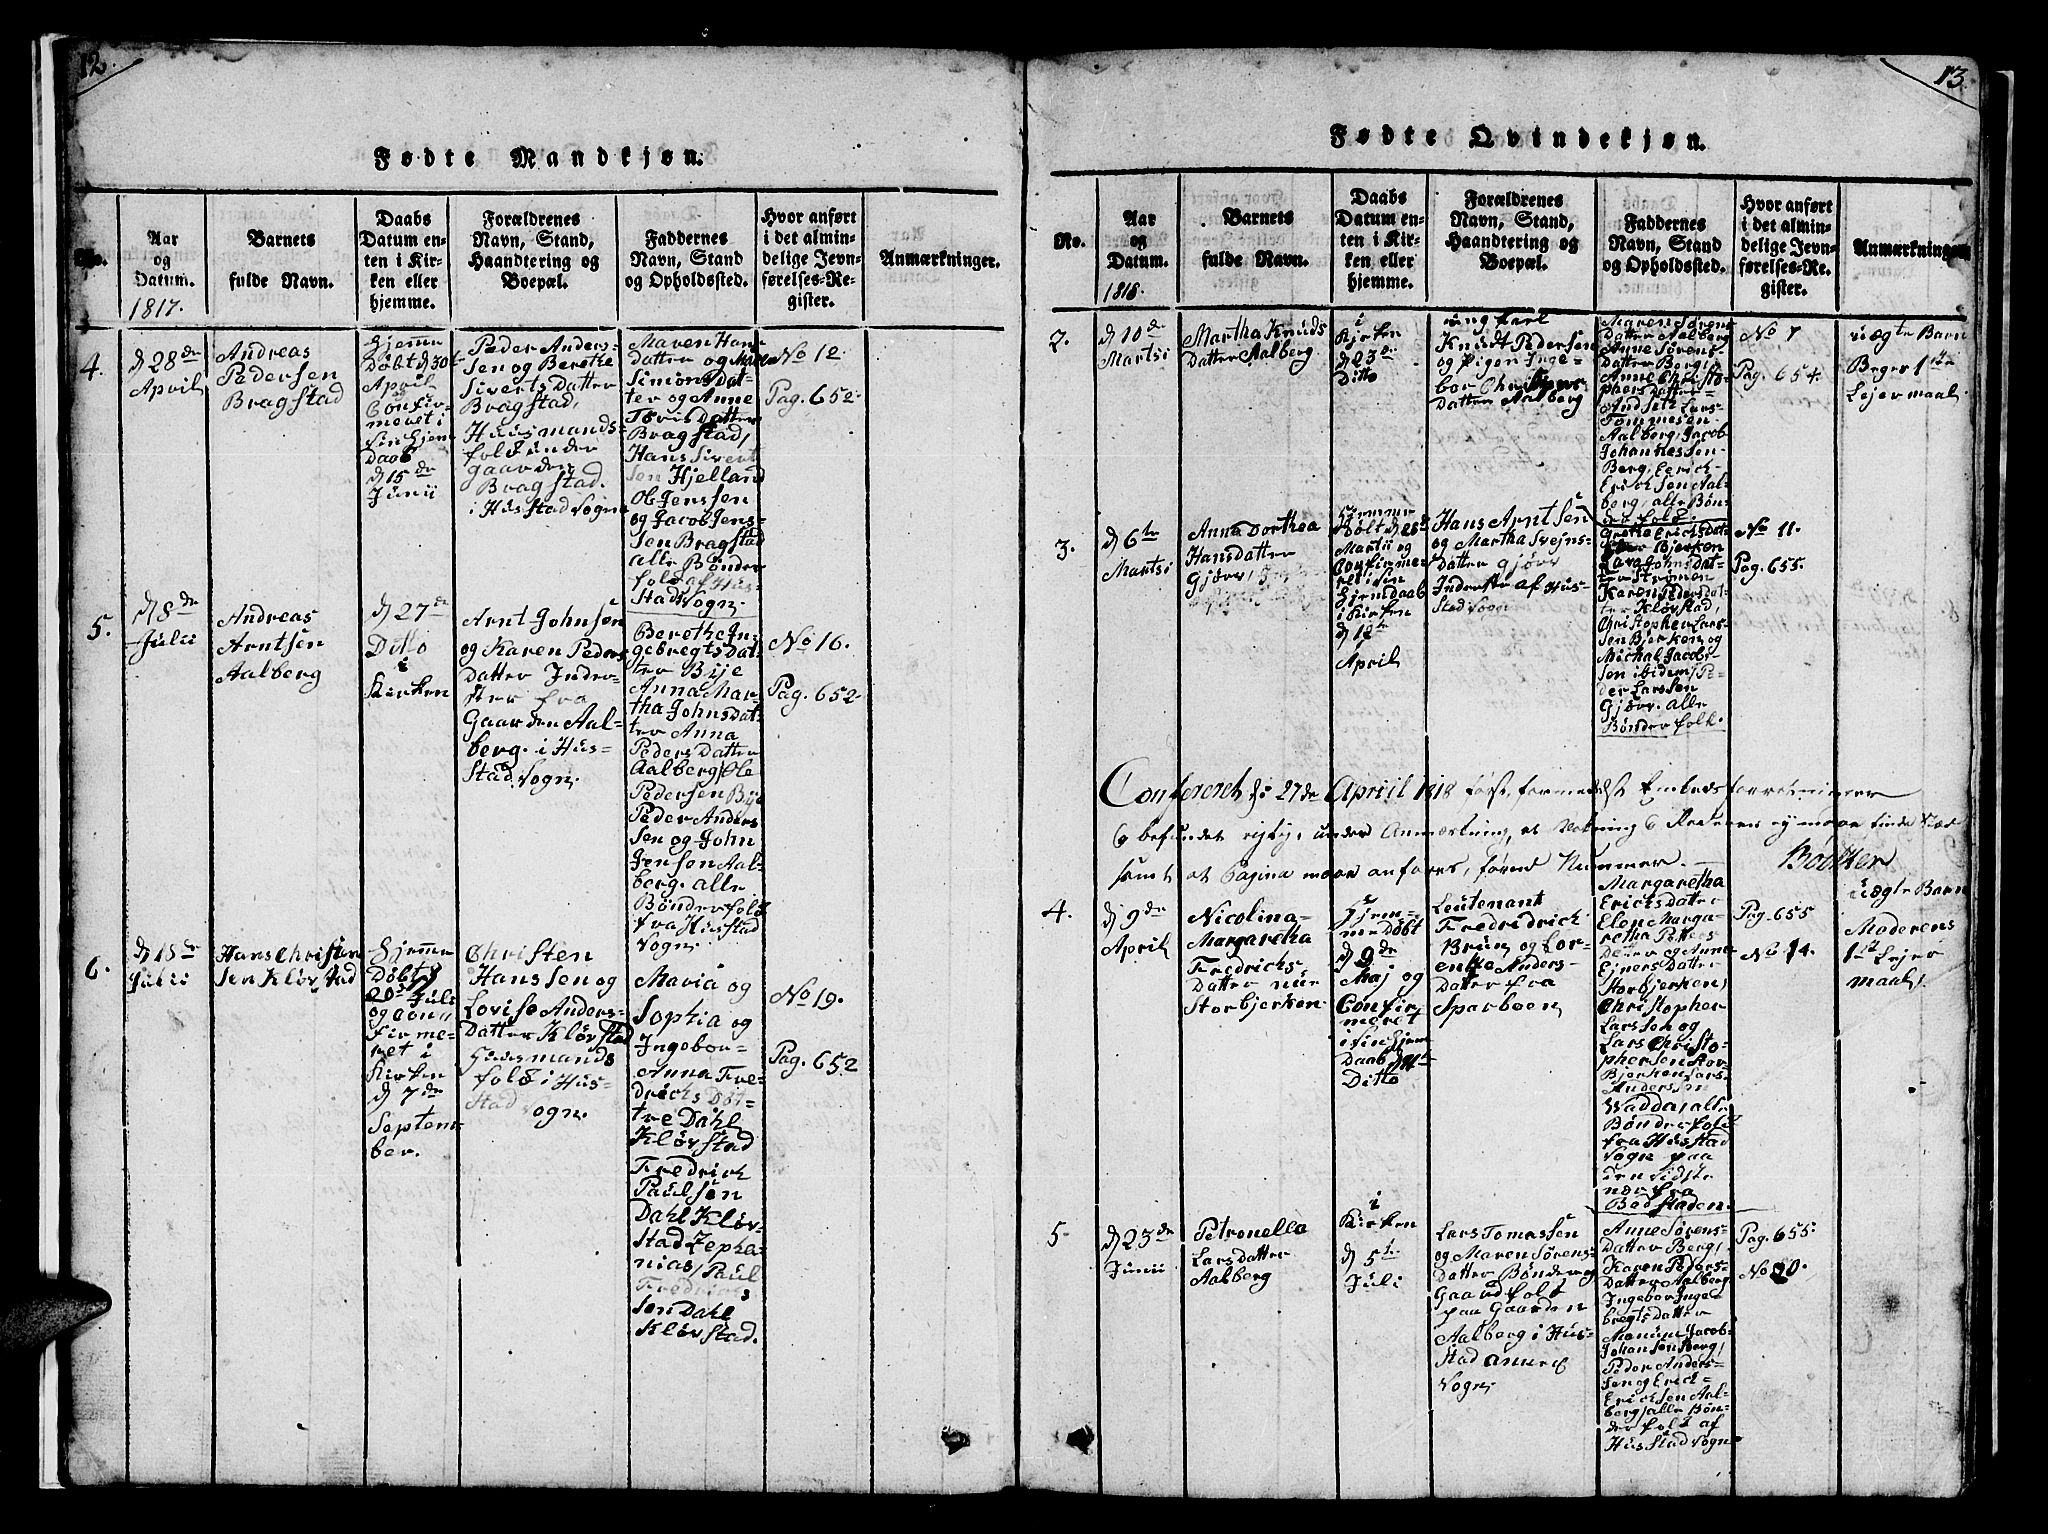 12.
Fødte Mandkjøn.
No.
Aar
og
Datum.
1817.
Barnets
fulde Navn.
Daabs
Datum en-
ten i Kir-
ken eller
hjemme.
Forældrenes
Navn, Stand,
Haandtering og
Boepæl.
Faddernes
Navn, Stand
og Opholdssted.
Hvor anført
i det almin-
delige Jevn-
førelses-Re-
gister.
Anmærkninger.
4.
d 28de
April
Andreas
Pedersen
Bragstad
Hjemme
Døbt d 30t
April
og
Confir-
meret i
sin hjem
Daab
d 15de
Junii
Peder Anders-
sen og Berethe
Siverts Datter
Bragstad,
Huusmands-
folk under
gaarden
Bragstad.
i Husstad Sogn
Maren Hans
datter og Maren
Simons Dat-
ter og Anne
Toris Datter
Bragstad,
Hans Sivert
sen Hjelland
Ol. Jenssen
og Jacob Jens-
sen Bragstad
alle Bønder
folk af Hus-
stad Sogn.
No 12
Pag. 652.
5.
d 8de
Julii
Andreas
Arntsen
Aalberg
d 27de
Ditto
i
Kirken
Arnt Johnsen
og Karen Peders
Datter Inder-
ster fra
Gaarden Aal-
berg. i Hus-
stad Sogn.
Berethe In-
gebregts Dat-
ter Bije
Anna Mar-
tha Johns Dat-
ter Anna
Peders Datter
Aalberg, Ole
Pedersen Bije
Peder Anders
sen og John
Jensen Aal-
berg. alle
Bønderfolk
fra Husstad
Sogn.
No 16.
Pag. 652.
6.
d 18de
Julii
Hans Christen
sen Kløvstad
Hjemme
Døbt d
20de Juli
og con-
firme-
ret i
Kirken
d 7de
Septem-
ber.
Christen
Hanssen og
Lovise Anders-
Datter Kløvstad
Huusmands
folk i Hus-
stad Sogn.
Maria og
Sophia og
Ingebor-
Anna Fre-
drichs Døt-
tre Dahl
Kløvstad
Fredrich
Paulsen
Dahl Kløv-
stad Zepha-
nias, Paul
Fredrichs
sen Dahl
Kløvstad.
No 19.
Pag. 652
13.
Fødte Qvindekjøn.
No.
Aar
og
Datum.
1818.
Barnets
fulde Navn.
Daabs
Datum en-
ten i Kir-
ken eller
hjemme.
Forældrenes
Navn, Stand,
Haandtering og
Boepæl.
Faddernes
Navn, Stand
og Opholdssted.
Hvor anført
i det almin-
delige Jevn-
førelses-Re-
gister.
Anmærkninger.
2.
d 10de
Martsi
Martha Knuds
Datter Aalberg
i
Kirken
d 23de
Ditto
ung karl
Knudt Pedersen
og Pigen Inge-
bor Christophers
Datter Aalberg
Maren Sørens
Datter Aalberg
Anne Sørens
Datter Berg,
Anne Christo-
phers Datter
Lars
Tommesen
Aalberg, Jacob
Johannessen
Berg, Erich
Ericksen Aal-
berg, alle Bøn-
derfolk.
No 7
Pag. 654.
uægte Barn
Beges 1ste
Lejermaal
3.
d 6te
Martsi
Anna Dorthea
Hansdatter
Gjørv,
Hjemme
Døbt d 25d
Martii og
Confirme-
ret i sin
hjemdaab
i Kirken
d 12te
April
Hans Arntsen
og Martha Svejns-
Datter Gjørv
Inderste af Hus-
stad Sogn
Grethe Erichsdat-
ter Bjerken
Sara Johns Dat-
ter Strømen
Karen Peders Dat-
ter Kløvstad,
Christopher Lars-
sen Bjerken og
Michal Jacob-
sen ibidem, Pe-
der Larssen
Gjørv. alle
Bønderfolk.
No 11.
Pag. 655.
Confereret d: 27de Apriil 1818 først, formedelst Embedsforretninger
og befundet rigtig, under Anmærkning, at Retning og Raderen ej maae finde Sted
samt at Pagina maae anføres, førend Nummer. —
Bøcker
4.
d 9de
April
Nicolina
Margaretha
Fredrichs
Datter
Storbjerken
Hjem-
me Døbt
d 9de
Maj og
Confir-
meret
i sin hjem
Daab d 11te
Ditto
Leutenant
Fredrich
Brun og Lor-
entze Anders-
Datter fra
Sparboen
Margaretha
Ericks Datter
Elen Marga-
retha Petters-
Datter og Anne
Ejners Datter
Storbjerken,
Christopher
Larssen og
Lars Christo-
phersen Stor
Bjerken Lars
Anderssen
Wadda, alle
Bønderfolk
fra Husstad
Sogn paa
den sidste
nær fra
Badstaden.
Pag. 655
No 14.
uægte Barn
Moderens
1st Lejer
maal.
5.
d 23de
Junii
Petronella
Larsdatter
Aalberg
i
Kirken
d 5te
Juli
Lars Tomassen
og Maren Sørens-
Datter Bønder og
Gaardfolk
paa Gaarden
Aalberg i Hus-
stad annex
Sogn
Anne Sørens-
Datter Berg,
Karen Peders-
Datter Aalberg
Ingebor Inge-
bregts Datter
Jacob
Johansen Berg,
Peder Anders-
sen og Erick-
Ericksen Aal-
berg, alle Bøn-
derfolk af
Husstad Sogn
Pag. 655.
No 20.